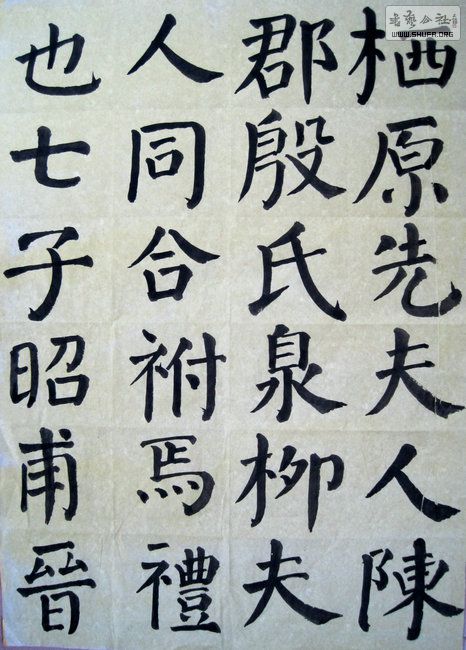 栖原先夫人陳
郡殷氏泉柳夫
人同合祔焉禮
也七子昭甫晉
書藝公社
WWW.SHUFA.ORG